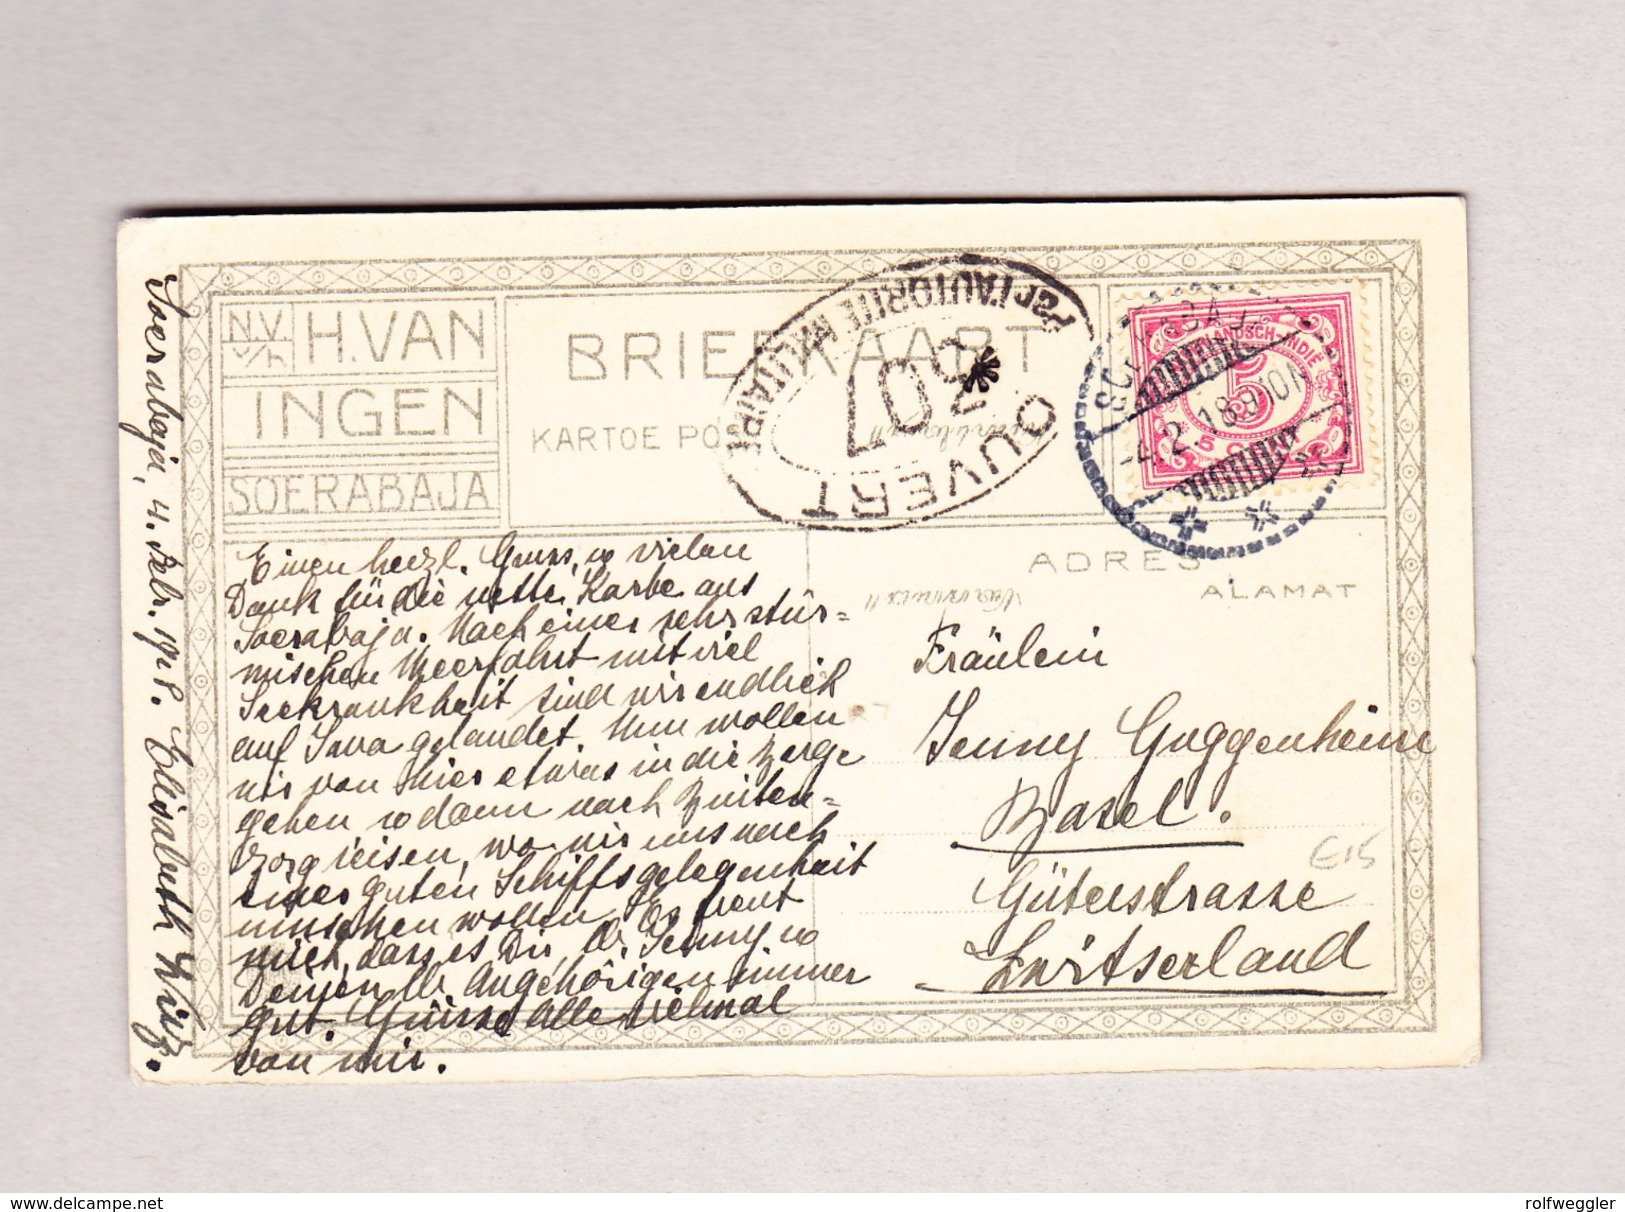 N.V. v/h H. VAN
INGEN
SOERABAJA
BRIEFKAART
KARTOE POS
OUVERT
Par l'AUTORITÉ MILITAIRE
SOERABAJA
4.2.18.9-10N
NEDERLANDSCH-INDIË
5
5
ADRES
ALAMAT
Einen herzl. Gruss, u vielen
Dank für die nette Karte aus
Soerabaja. Nach einer sehr stür=
mischen Meerfahrt mit viel
Seekrankheit sind wir endlich
auf Java gelandet. Nun wollen
wir von hier etwas in die Berge
gehen u dann nach Buiten=
zorg reisen, wo wir uns nach
einer guten Schiffsgelegenheit
umsehen wollen. Es freut
mich, dass es Dir, lb. Jenny u
Deinen lb Angehörigen immer
gut. Grüsse Alle vielmal
von mir.
Soerabaja, 4. Febr. 1918. Elisabeth Wirz.
Fräulein
Jenny Guggenheim
Basel.
Güterstrasse
Zwitserland
E15
rolfweggler
©delcampe.net